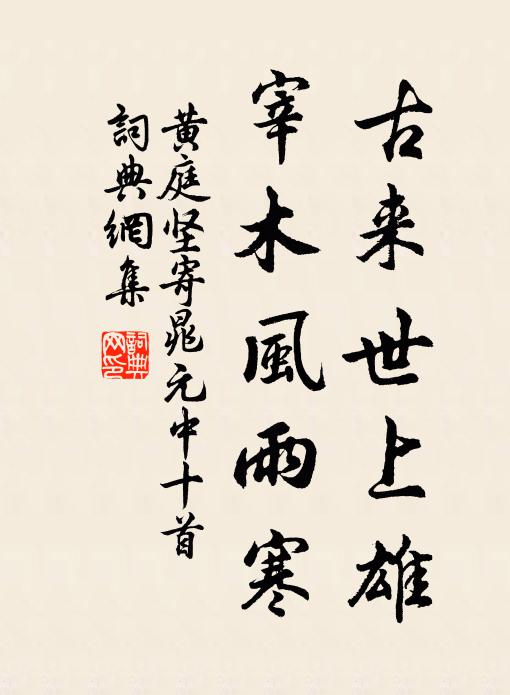 古来世上雄
宰木風雨寒
黄庭坚寄晁元中十首
詞典網集
詞典网印